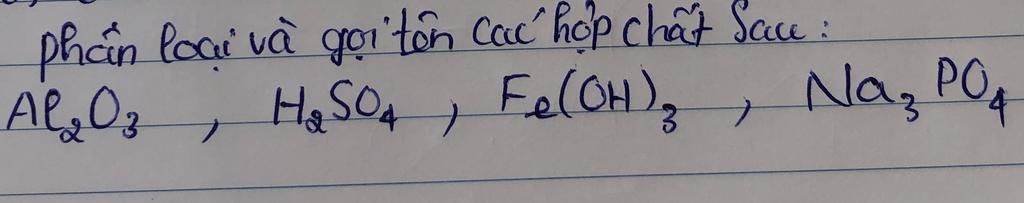 phân loại và gọi tên các hợp chất sau:
Al₂O₃, H₂SO₄, Fe(OH)₃, Na₃PO₄